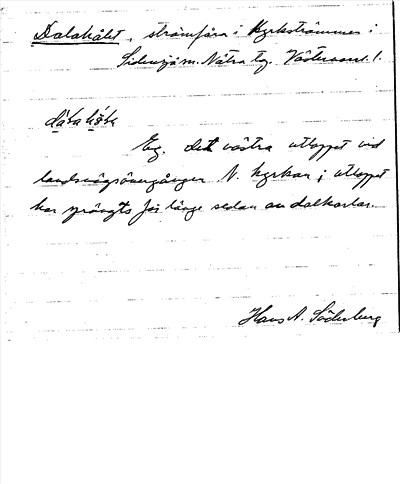 Dalahålet, strömfåra i Kyrkströmmen i
Sidensjö sn. Nätra tg. Västernorrl. l.
Eg. det västra utloppet vid
landsvägsövergången N. kyrkan; utloppet
har sprängts för länge sedan av dalkarlar.
Hans A. Söderberg